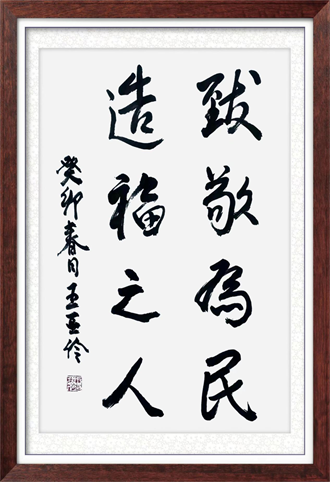 致敬為民
造福之人
癸卯春日王亚伶